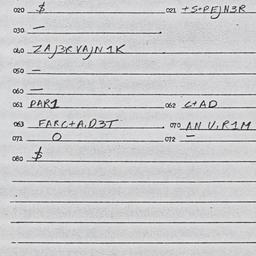 020 $ 021 +S+PEJN3R
030 — .
040 ZAJ3RVAJN1K
050 —
060 —
061 PAR1 062 C+AD
063 FARC+A,D3T . 070 AN U,R1M
071 O 072 —
080 $